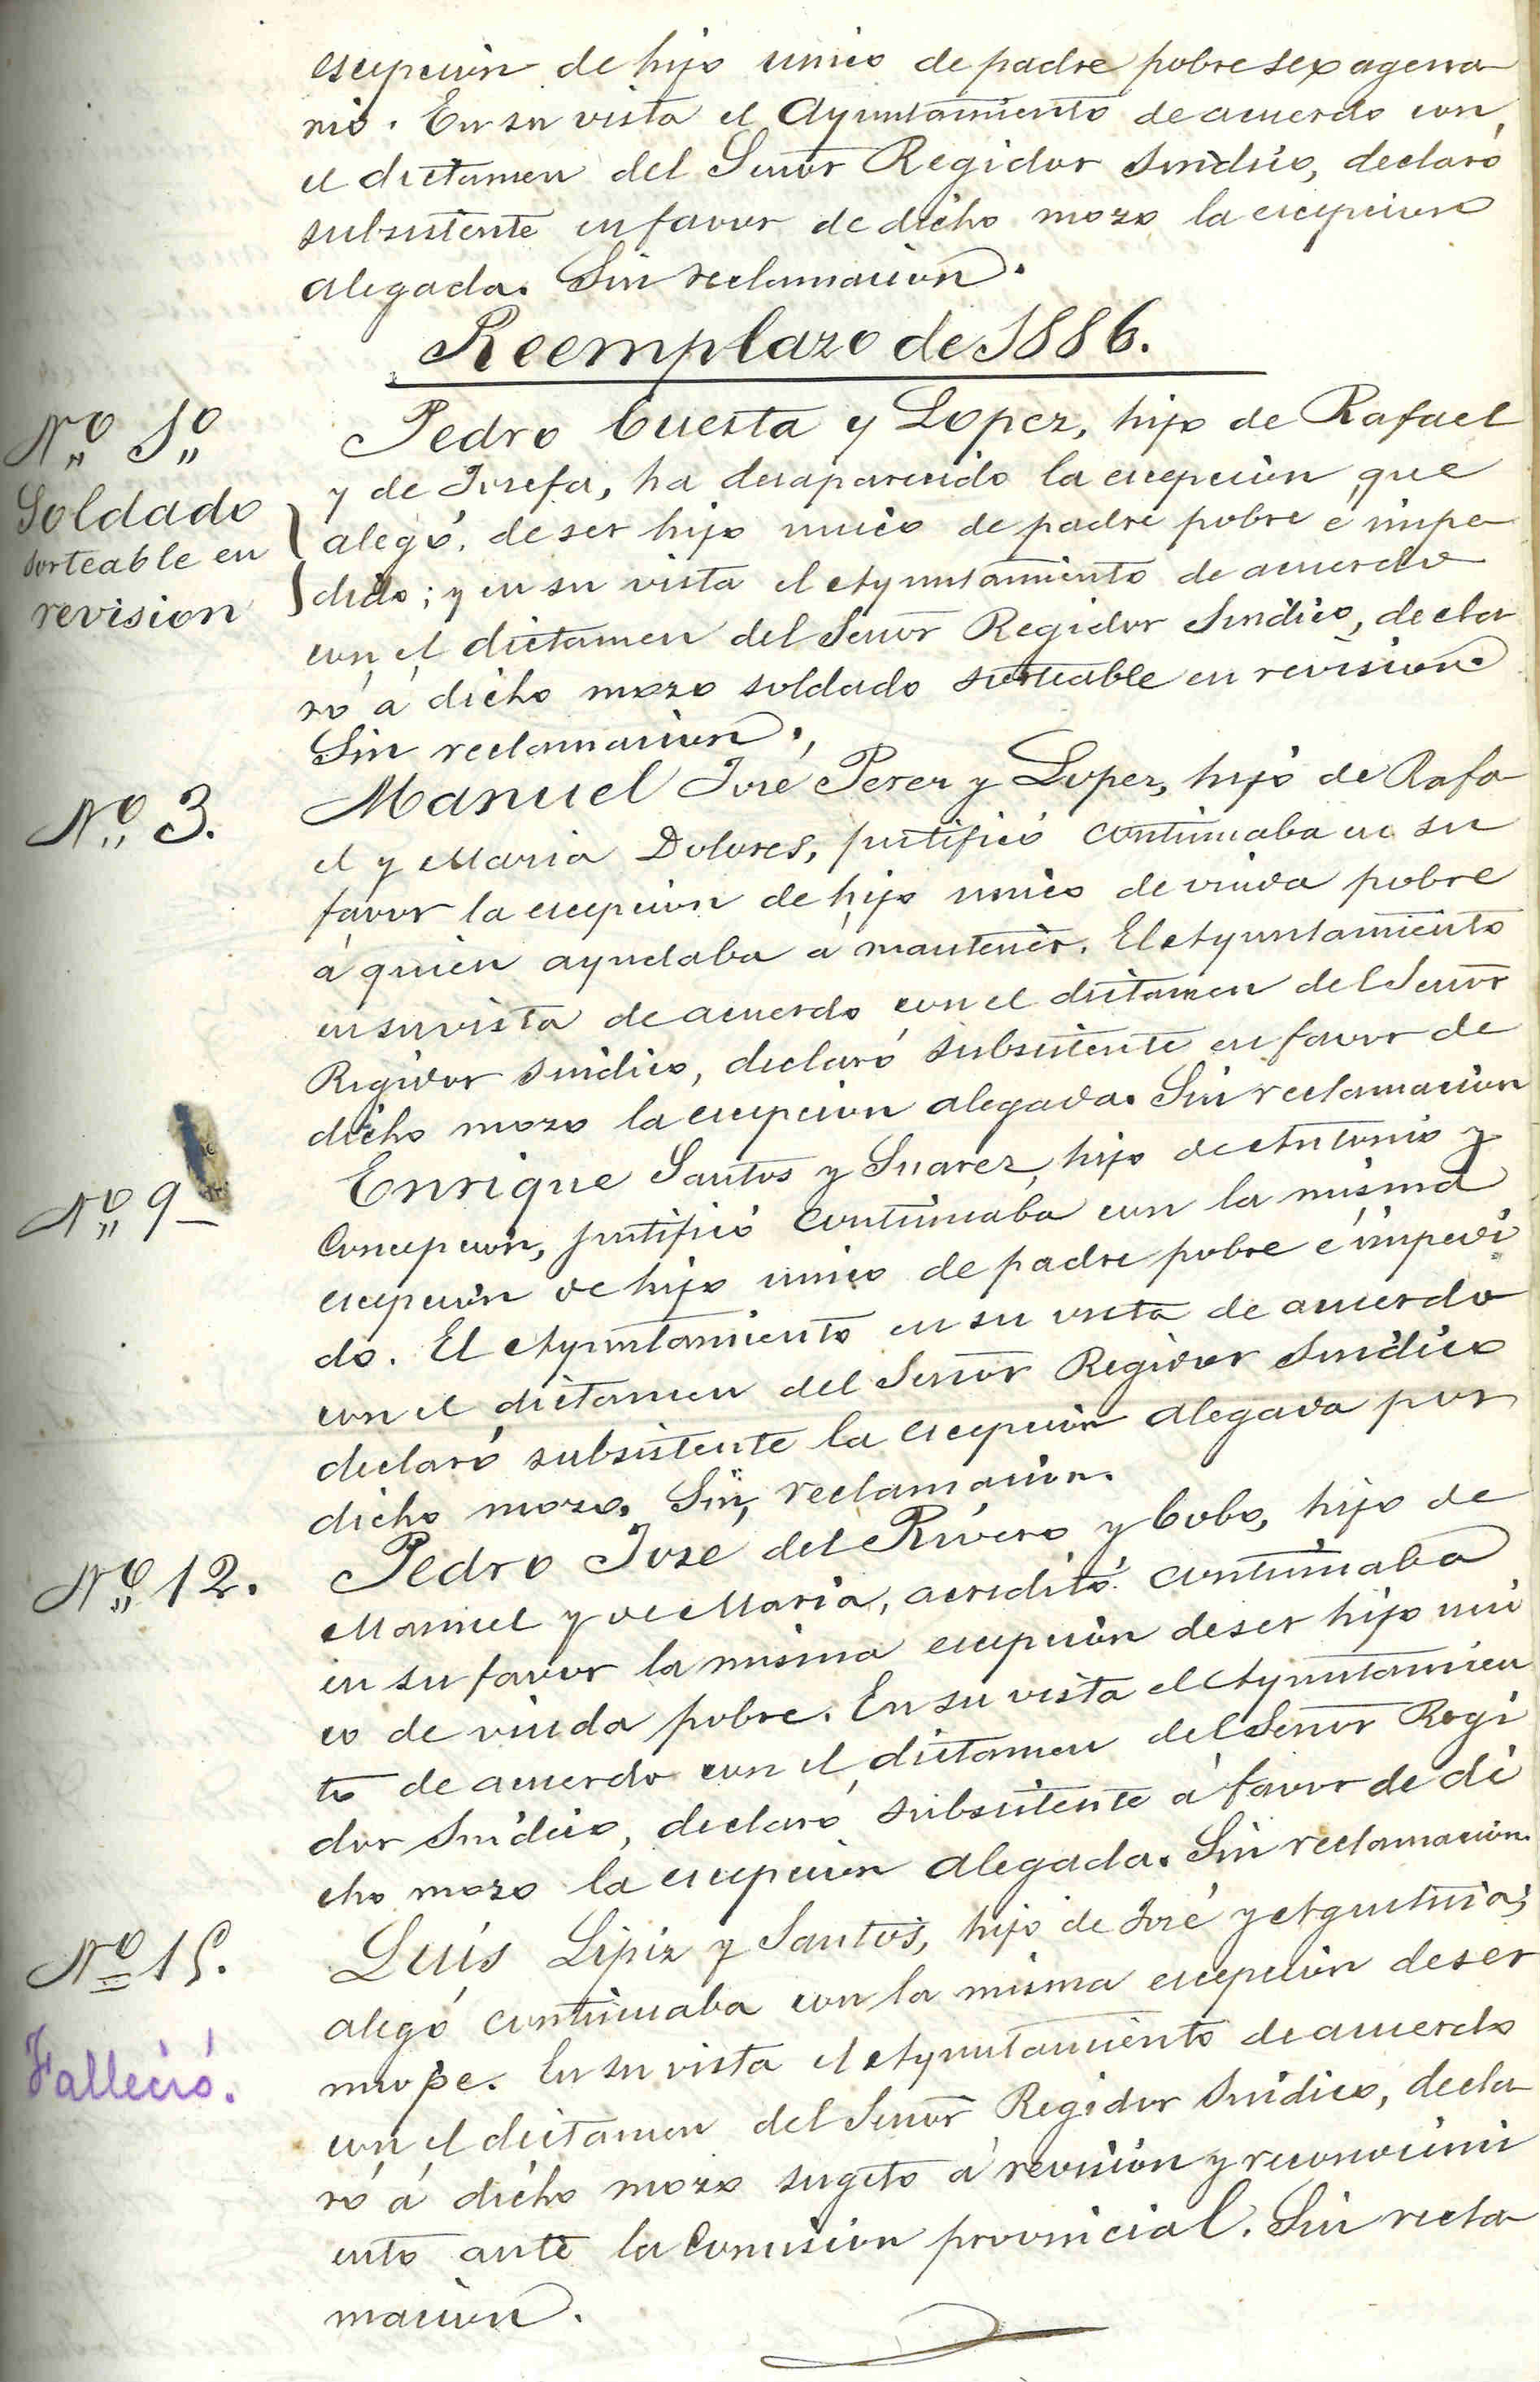 escepcion de hijo unico de padre pobre sexagena
rio. En su vista el Ayuntamiento de acuerdo con
el dictamen del Señor Regidor Sindico, declaró
subsistente en favor de dicho mozo la escepcion
alegada. Sin reclamacion.
Reemplazo de 1886.
Nº 1º
Soldado
sorteable en
revision
Pedro Cuesta y Lopez, hijo de Rafael
y de Josefa, ha desaparecido la escepcion que
alegó, de ser hijo unico de padre pobre é impe
dido; y en su vista el Ayuntamiento de acuerdo
con el dictamen del Señor Regidor Sindico, decla
ró á dicho mozo soldado sorteable en revision.
Sin reclamacion.
Nº 3.
Manuel José Perez y Lopez, hijo de Rafa
el y Maria Dolores, justificó continuaba en su
favor la escepcion de hijo unico de viuda pobre
á quien ayudaba á mantener. El Ayuntamiento
en su vista de acuerdo con el dictamen del Señor
Regidor Sindico, declaró subsistente en favor de
dicho mozo la escepcion alegada. Sin reclamacion
Nº 9
Enrique Santos y Suarez, hijo de Antonio y
Concepcion, justificó continuaba con la misma
escepcion de hijo unico de padre pobre é impedi
do. El Ayuntamiento en su vista de acuerdo
con el dictamen del Señor Regidor Sindico
declaró subsistente la escepcion alegada por
dicho mozo. Sin reclamacion.
Nº 12.
Pedro José del Rivero y Cobo, hijo de
Manuel y de Maria, acreditó continuaba
en su favor la misma escepcion de ser hijo uni
co de viuda pobre. En su vista el Ayuntamien
to de acuerdo con el dictamen del Señor Regi
dor Sindico, declaró subsistente á favor de di
cho mozo la escepcion alegada. Sin reclamacion.
Nº 15.
Falleció.
Luis Lipiz y Santos, hijo de José y Agustina,
alegó continuaba con la misma escepcion de ser
miope. En su vista el Ayuntamiento de acuerdo
con el dictamen del Señor Regidor Sindico, decla
ró á dicho mozo sugeto á revision y reconocimi
ento ante la Comision provincial. Sin recla
macion.